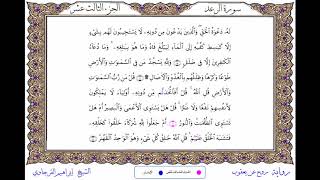 سورة الرعد
الجزء الثالث عشر
لَهُۥ دَعْوَةُ ٱلْحَقِّ ۖ وَٱلَّذِينَ يَدْعُونَ مِن دُونِهِۦ لَا يَسْتَجِيبُونَ لَهُم بِشَىْءٍ
إِلَّا كَبَـٰسِطِ كَفَّيْهِ إِلَى ٱلْمَآءِ لِيَبْلُغَ فَاهُ وَمَا هُوَ بِبَـٰلِغِهِۦ ۚ وَمَا دُعَآءُ
ٱلْكَـٰفِرِينَ إِلَّا فِى ضَلَـٰلٍ وَلِلَّهِ يَسْجُدُ مَن فِى ٱلسَّمَـٰوَٰتِ وَٱلْأَرْضِ
طَوْعًا وَكَرْهًا وَظِلَـٰلُهُم بِٱلْغُدُوِّ وَٱلْـَٔاصَالِ ۩ قُلْ مَن رَّبُّ ٱلسَّمَـٰوَٰتِ
وَٱلْأَرْضِ قُلِ ٱللَّهُ ۚ قُلْ أَفَٱتَّخَذتُّم مِّن دُونِهِۦٓ أَوْلِيَآءَ لَا يَمْلِكُونَ
لِأَنفُسِهِمْ نَفْعًا وَلَا ضَرًّا ۚ قُلْ هَلْ يَسْتَوِى ٱلْأَعْمَىٰ وَٱلْبَصِيرُ أَمْ هَلْ
تَسْتَوِى ٱلظُّلُمَـٰتُ وَٱلنُّورُ ۗ أَمْ جَعَلُوا۟ لِلَّهِ شُرَكَآءَ خَلَقُوا۟ كَخَلْقِهِۦ
فَتَشَـٰبَهَ ٱلْخَلْقُ عَلَيْهِمْ ۚ قُلِ ٱللَّهُ خَـٰلِقُ كُلِّ شَىْءٍ وَهُوَ ٱلْوَٰحِدُ ٱلْقَهَّـٰرُ
رواية روح عن يعقوب
الشيخ إبراهيم الفرجاوي